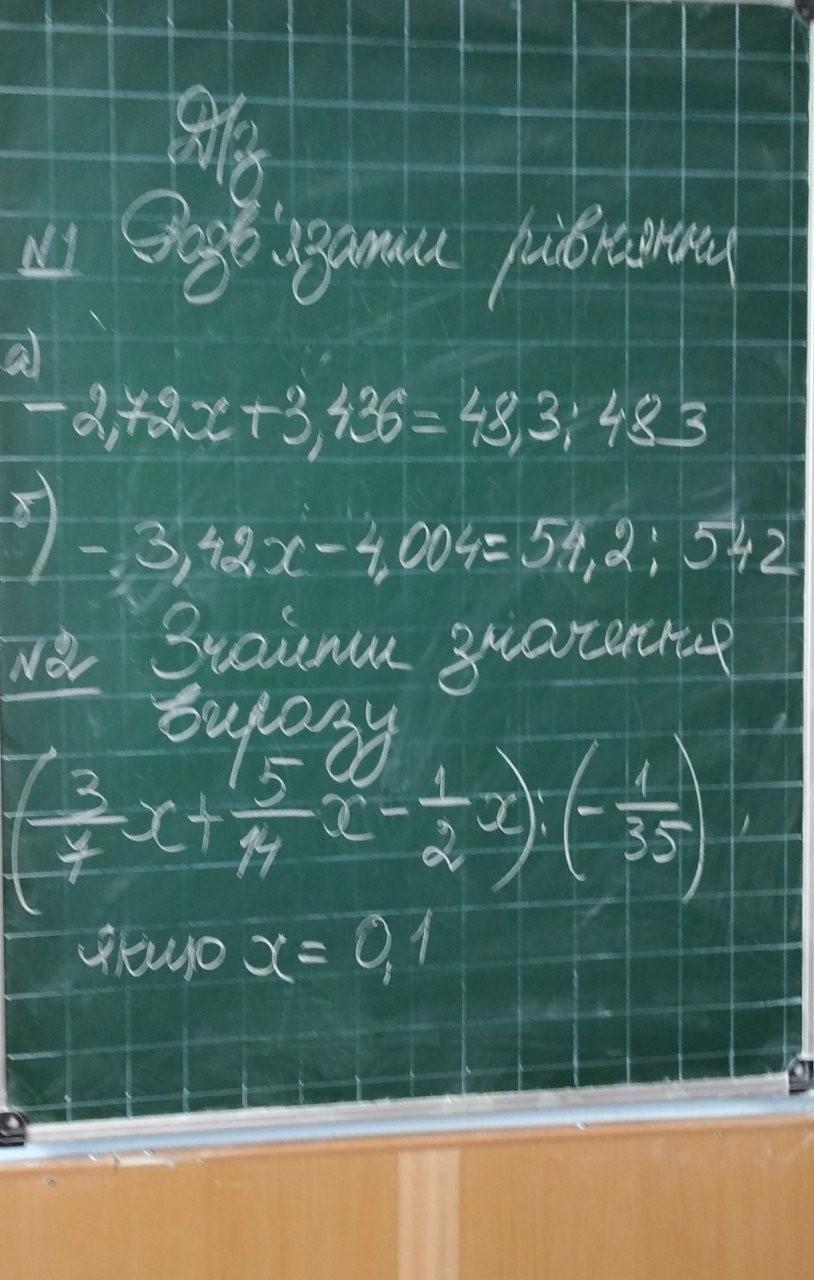 Д/з
№1 Розв'язати рівняння
а)
-2,72x+3,436=48,3:483
б) -3,42x-4,004=54,2:542
№2 Знайти значення
виразу
(3/7 x + 5/14 x - 1/2 x) : (-1/35),
якщо x = 0,1